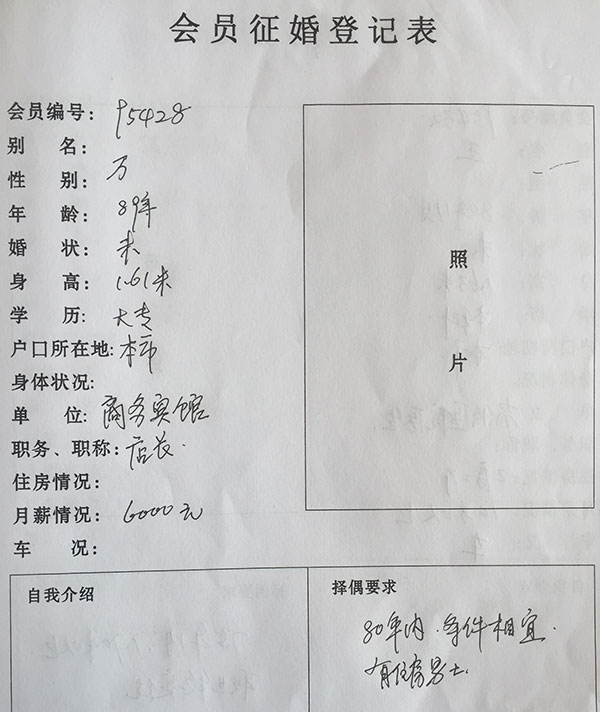 会员征婚登记表
会员编号: 95428
别 名:
性 别: 万
年 龄: 89年
婚 状: 未
身 高: 1.61米
学 历: 大专
户口所在地: 本市
身体状况:
单 位: 商务宾馆
职务、职称: 店长.
住房情况:
月薪情况: 6000元
车 况:
照
片
自我介绍
择偶要求
80年内.条件相宜.
有住房男士.